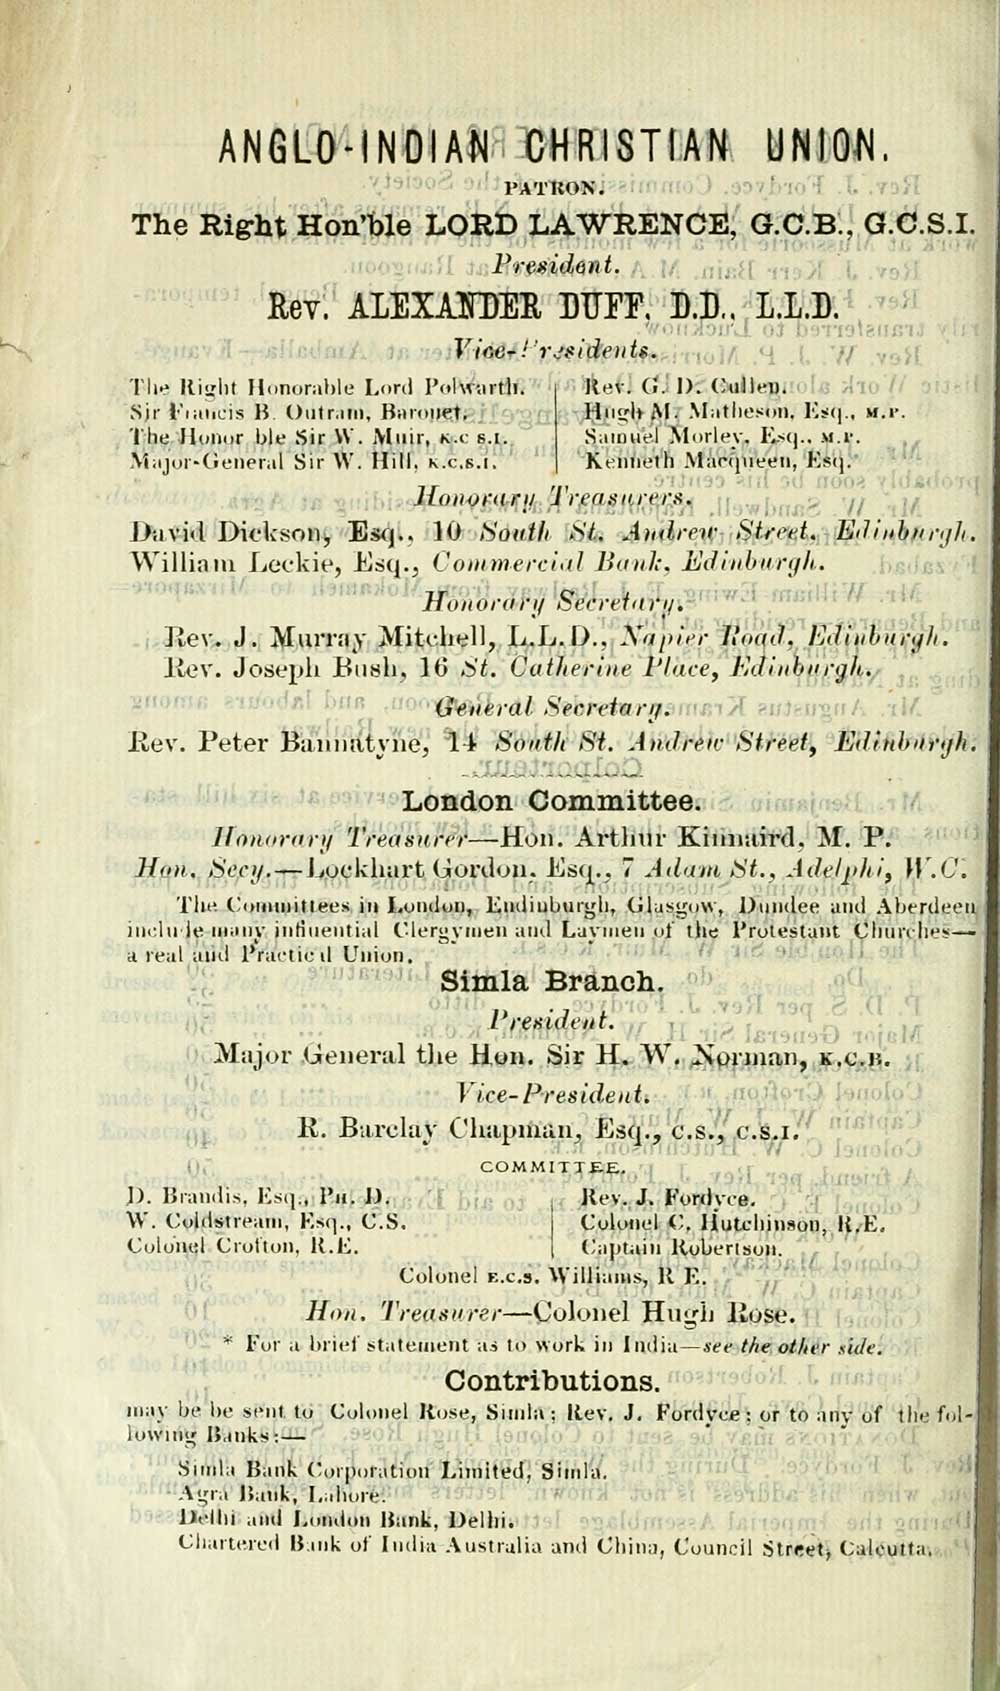 ANGLO-INDIAN CHRISTIAN UNION.
PATRON.
The Right Hon'ble LORD LAWRENCE, G.C.B., G.C.S.I.
President.
Rev. ALEXANDER DUFF, D.D., L.L.D.
Vice-Presidents.
The Right Honorable Lord Polwarth.
Sir Francis B. Outram, Baronet.
The Honor ble Sir W. Muir, K.C S.I.
Major-General Sir W. Hill, K.C.S.I.
Rev. G. D. Cullen.
Hugh M. Matheson, Esq., M.P.
Samuel Morley, Esq., M.P.
Kenneth Macqueen, Esq.
Honorary Treasurers.
David Dickson, Esq., 10 South St. Andrew Street, Edinburgh.
William Leckie, Esq., Commercial Bank, Edinburgh.
Honorary Secretary.
Rev. J. Murray Mitchell, L.L.D., Napier Road, Edinburgh.
Rev. Joseph Bush, 16 St. Catherine Place, Edinburgh.
General Secretary.
Rev. Peter Bannatyne, 14 South St. Andrew Street, Edinburgh.
London Committee.
Honorary Treasurer—Hon. Arthur Kinnaird, M. P.
Hon. Secy.—Lockhart Gordon, Esq., 7 Adam St., Adelphi, W.C.
The Committees in London, Endinburgh, Glasgow, Dundee and Aberdeen
include many influential Clergymen and Laymen of the Protestant Churches—
a real and Practical Union.
Simla Branch.
President.
Major General the Hon. Sir H. W. Norman, K.C.B.
Vice-President.
R. Barclay Chapman, Esq., C.S., C.S.I.
COMMITTEE.
D. Brandis, Esq., PH. D.
W. Coldstream, Esq., C.S.
Colonel Crofton, R.E.
Rev. J. Fordyce.
Colonel C. Hutchinson, R.E.
Captain Robertson.
Colonel E.C.S. Williams, R E.
Hon. Treasurer—Colonel Hugh Rose.
* For a brief statement as to work in India—see the other side.
Contributions.
may be be sent to Colonel Rose, Simla; Rev. J. Fordyce; or to any of the fol-
lowing Banks:—
Simla Bank Corporation Limited, Simla.
Agra Bank, Lahore.
Delhi and London Bank, Delhi.
Chartered Bank of India Australia and China, Council Street, Calcutta.